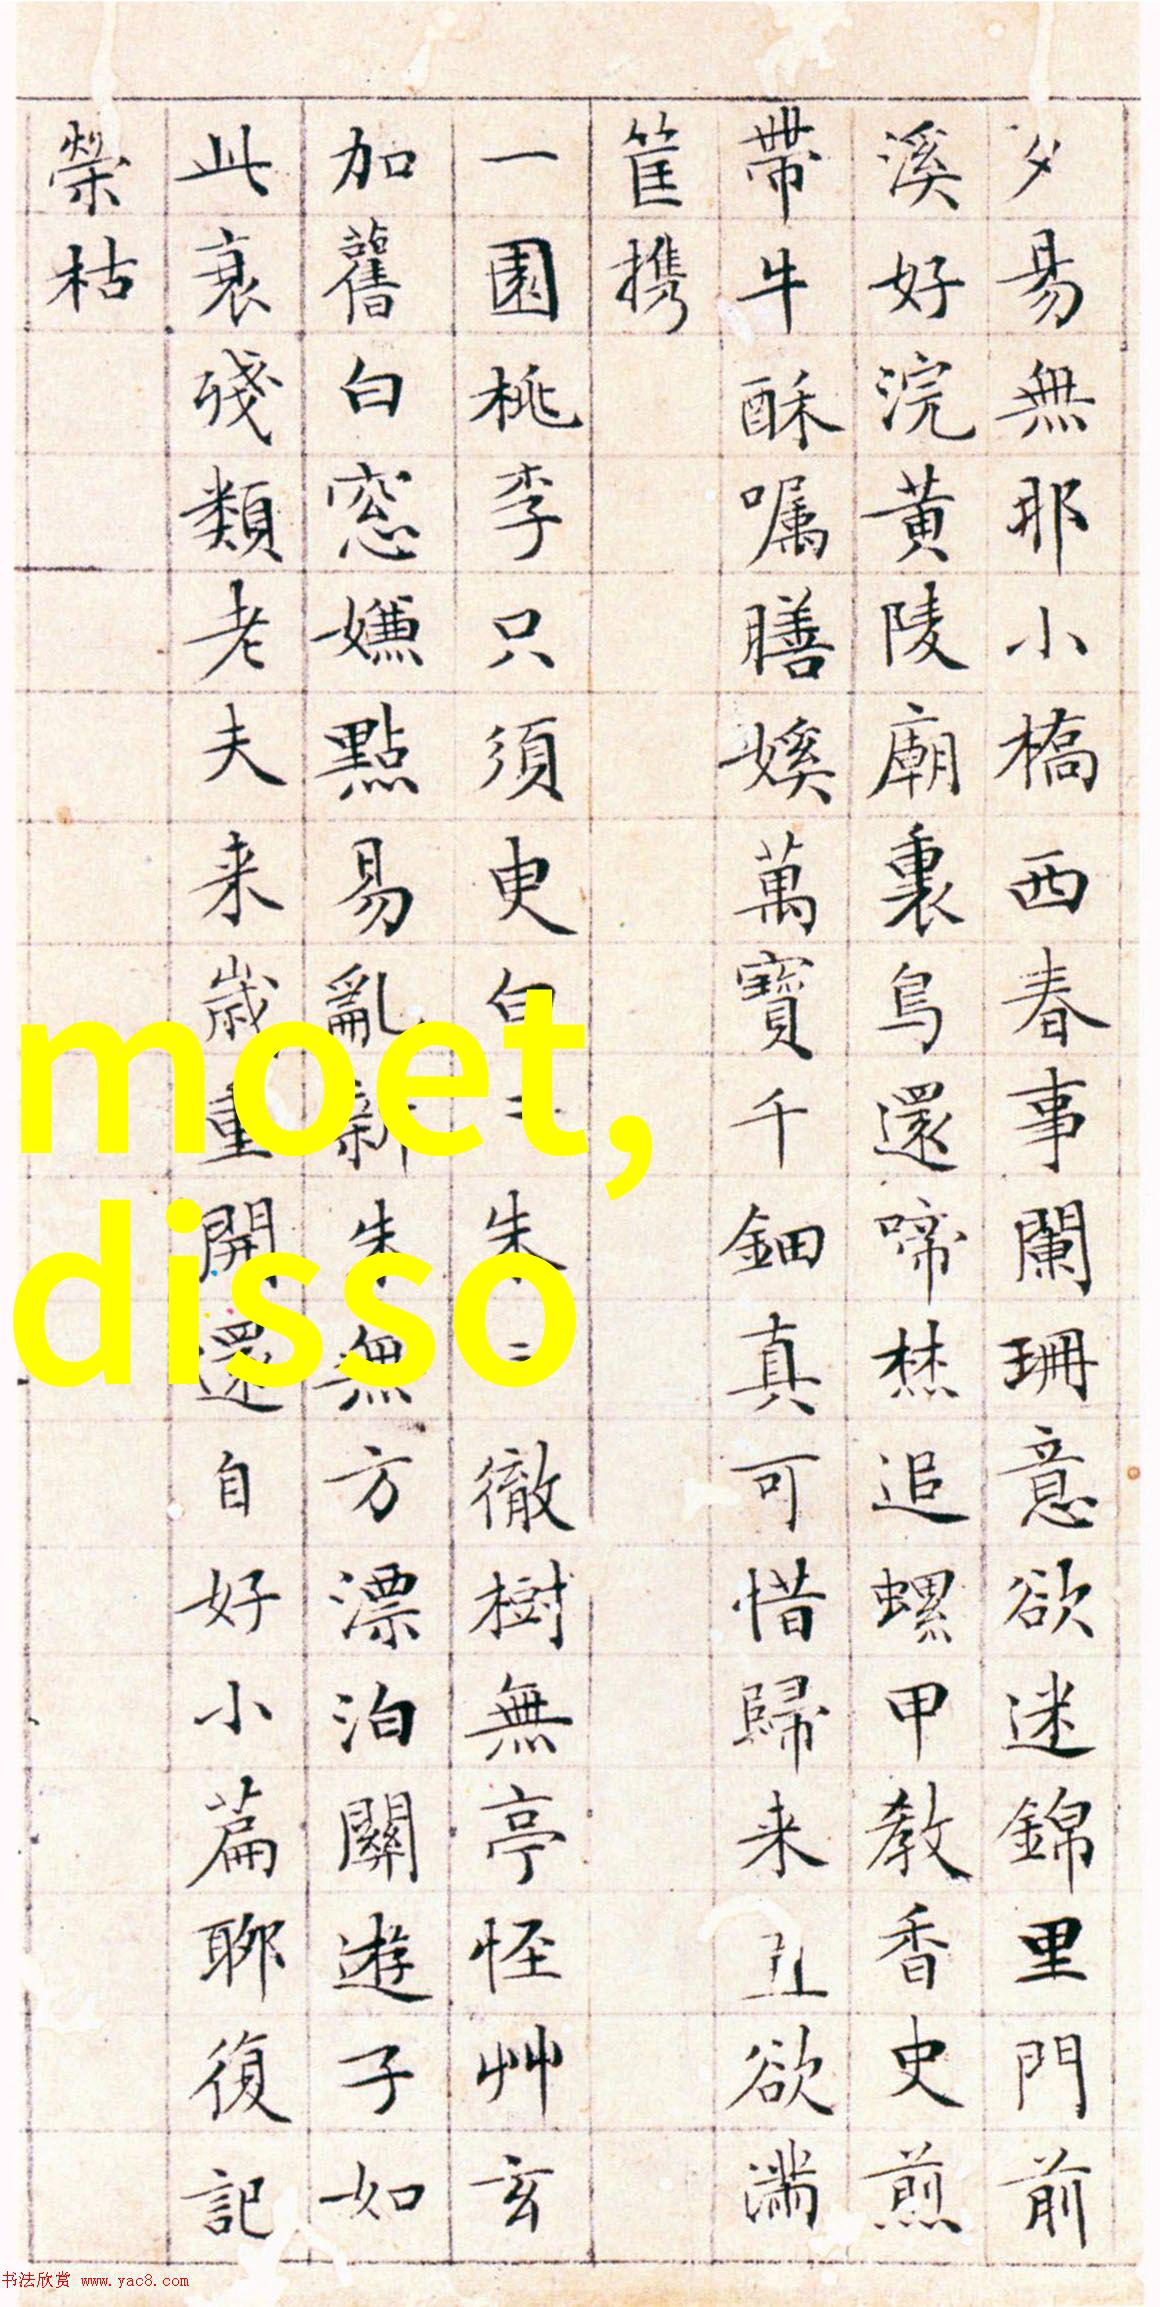 夕易無耶小橋西春事闌珊意欲迷錦里門前
溪好浣黃陵廟裏鳥還啼焚追螺甲教香史煎
帶牛酥嘱膳娭萬寶千鈿真可惜歸来丑欲滿
筐携
一園桃李只須更白二朱二徹樹無亭怪艸玄
加舊白窓嫌點易亂新朱無方漂泊關遊子如
此衰殘類老夫来歳重開還自好小篇聊復記
榮枯
moet,
disso
书法欣赏 www.yac8.com